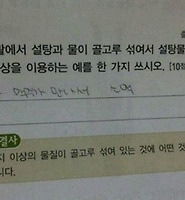 활에서 설탕과 물이 골고루 섞여서 설탕물
상을 이용하는 예를 한 가지 쓰시오. [10
먹다가 만나서
검사
지 이상의 물질이 골고루 섞여 있는 것에 어떤 것
니다.